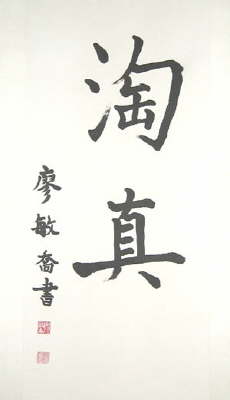 淘真
廖敏喬書